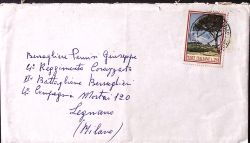 Bersagliere Pennisi Giuseppe
4° Reggimento Corazzato
1° Battaglione Bersaglieri
4a Compagnia Mortai 120
Legnano
(Milano)